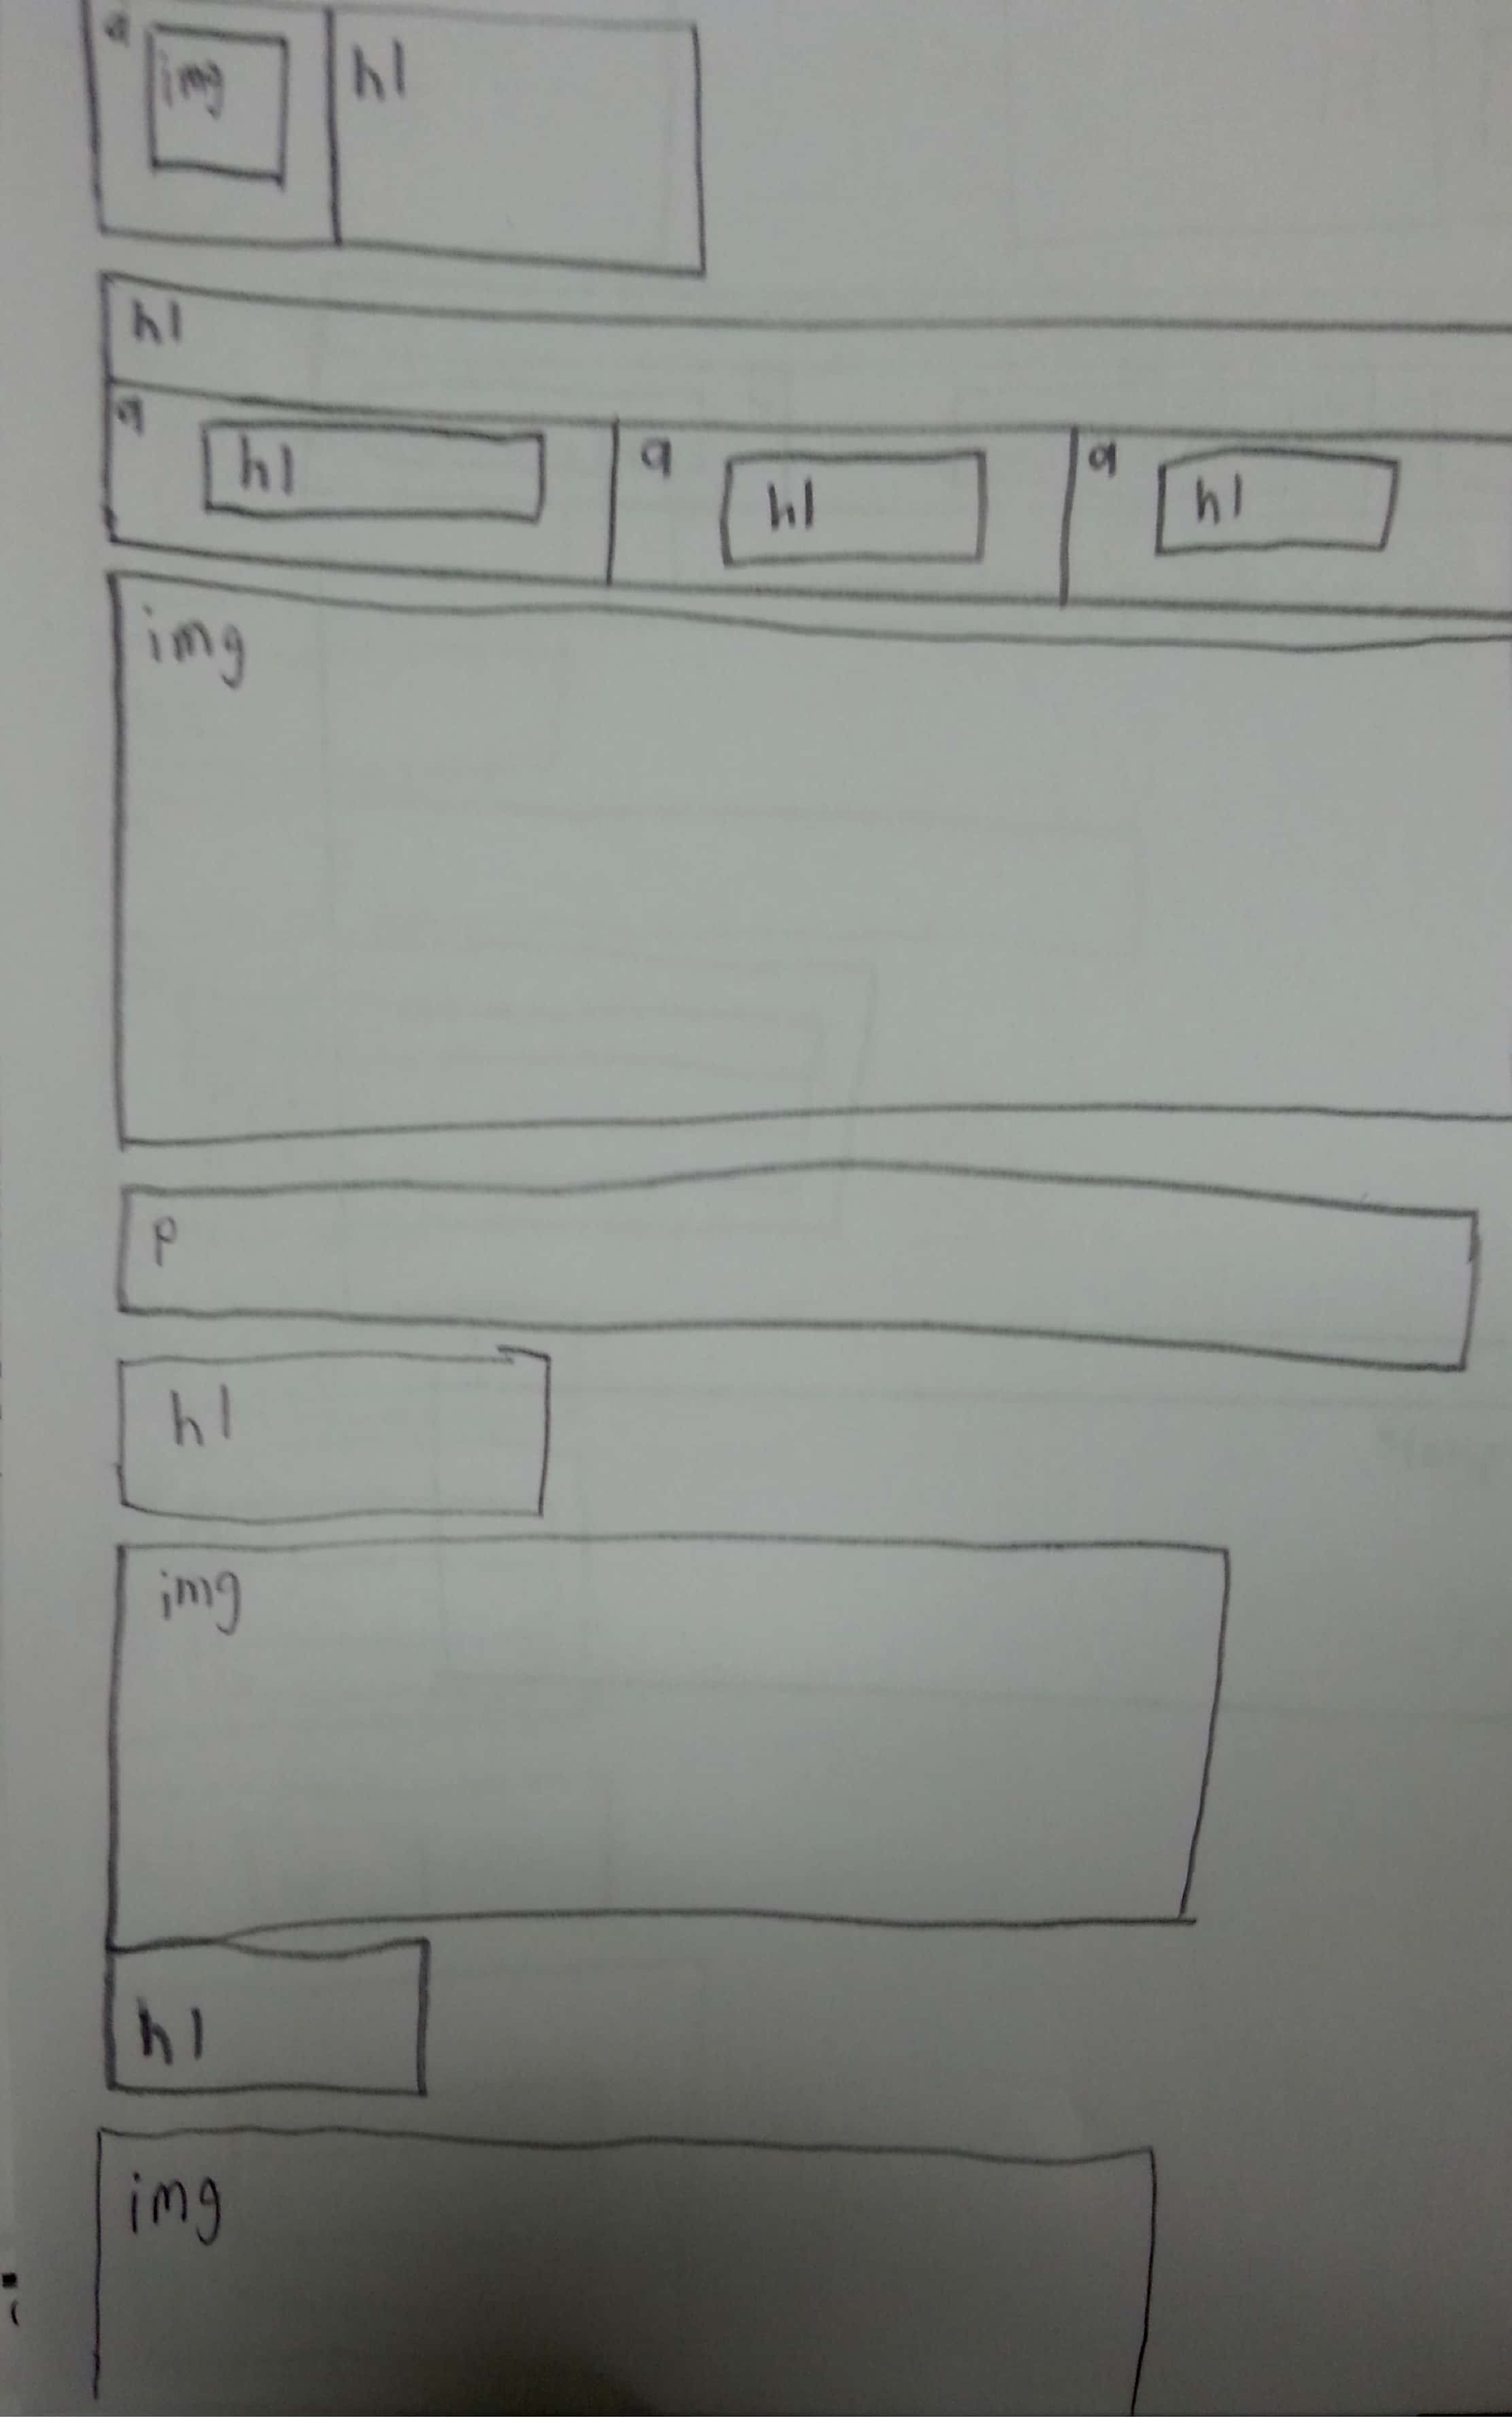 a img h1
h1
a h1 a h1 a h1
img
p
h1
img
h1
img